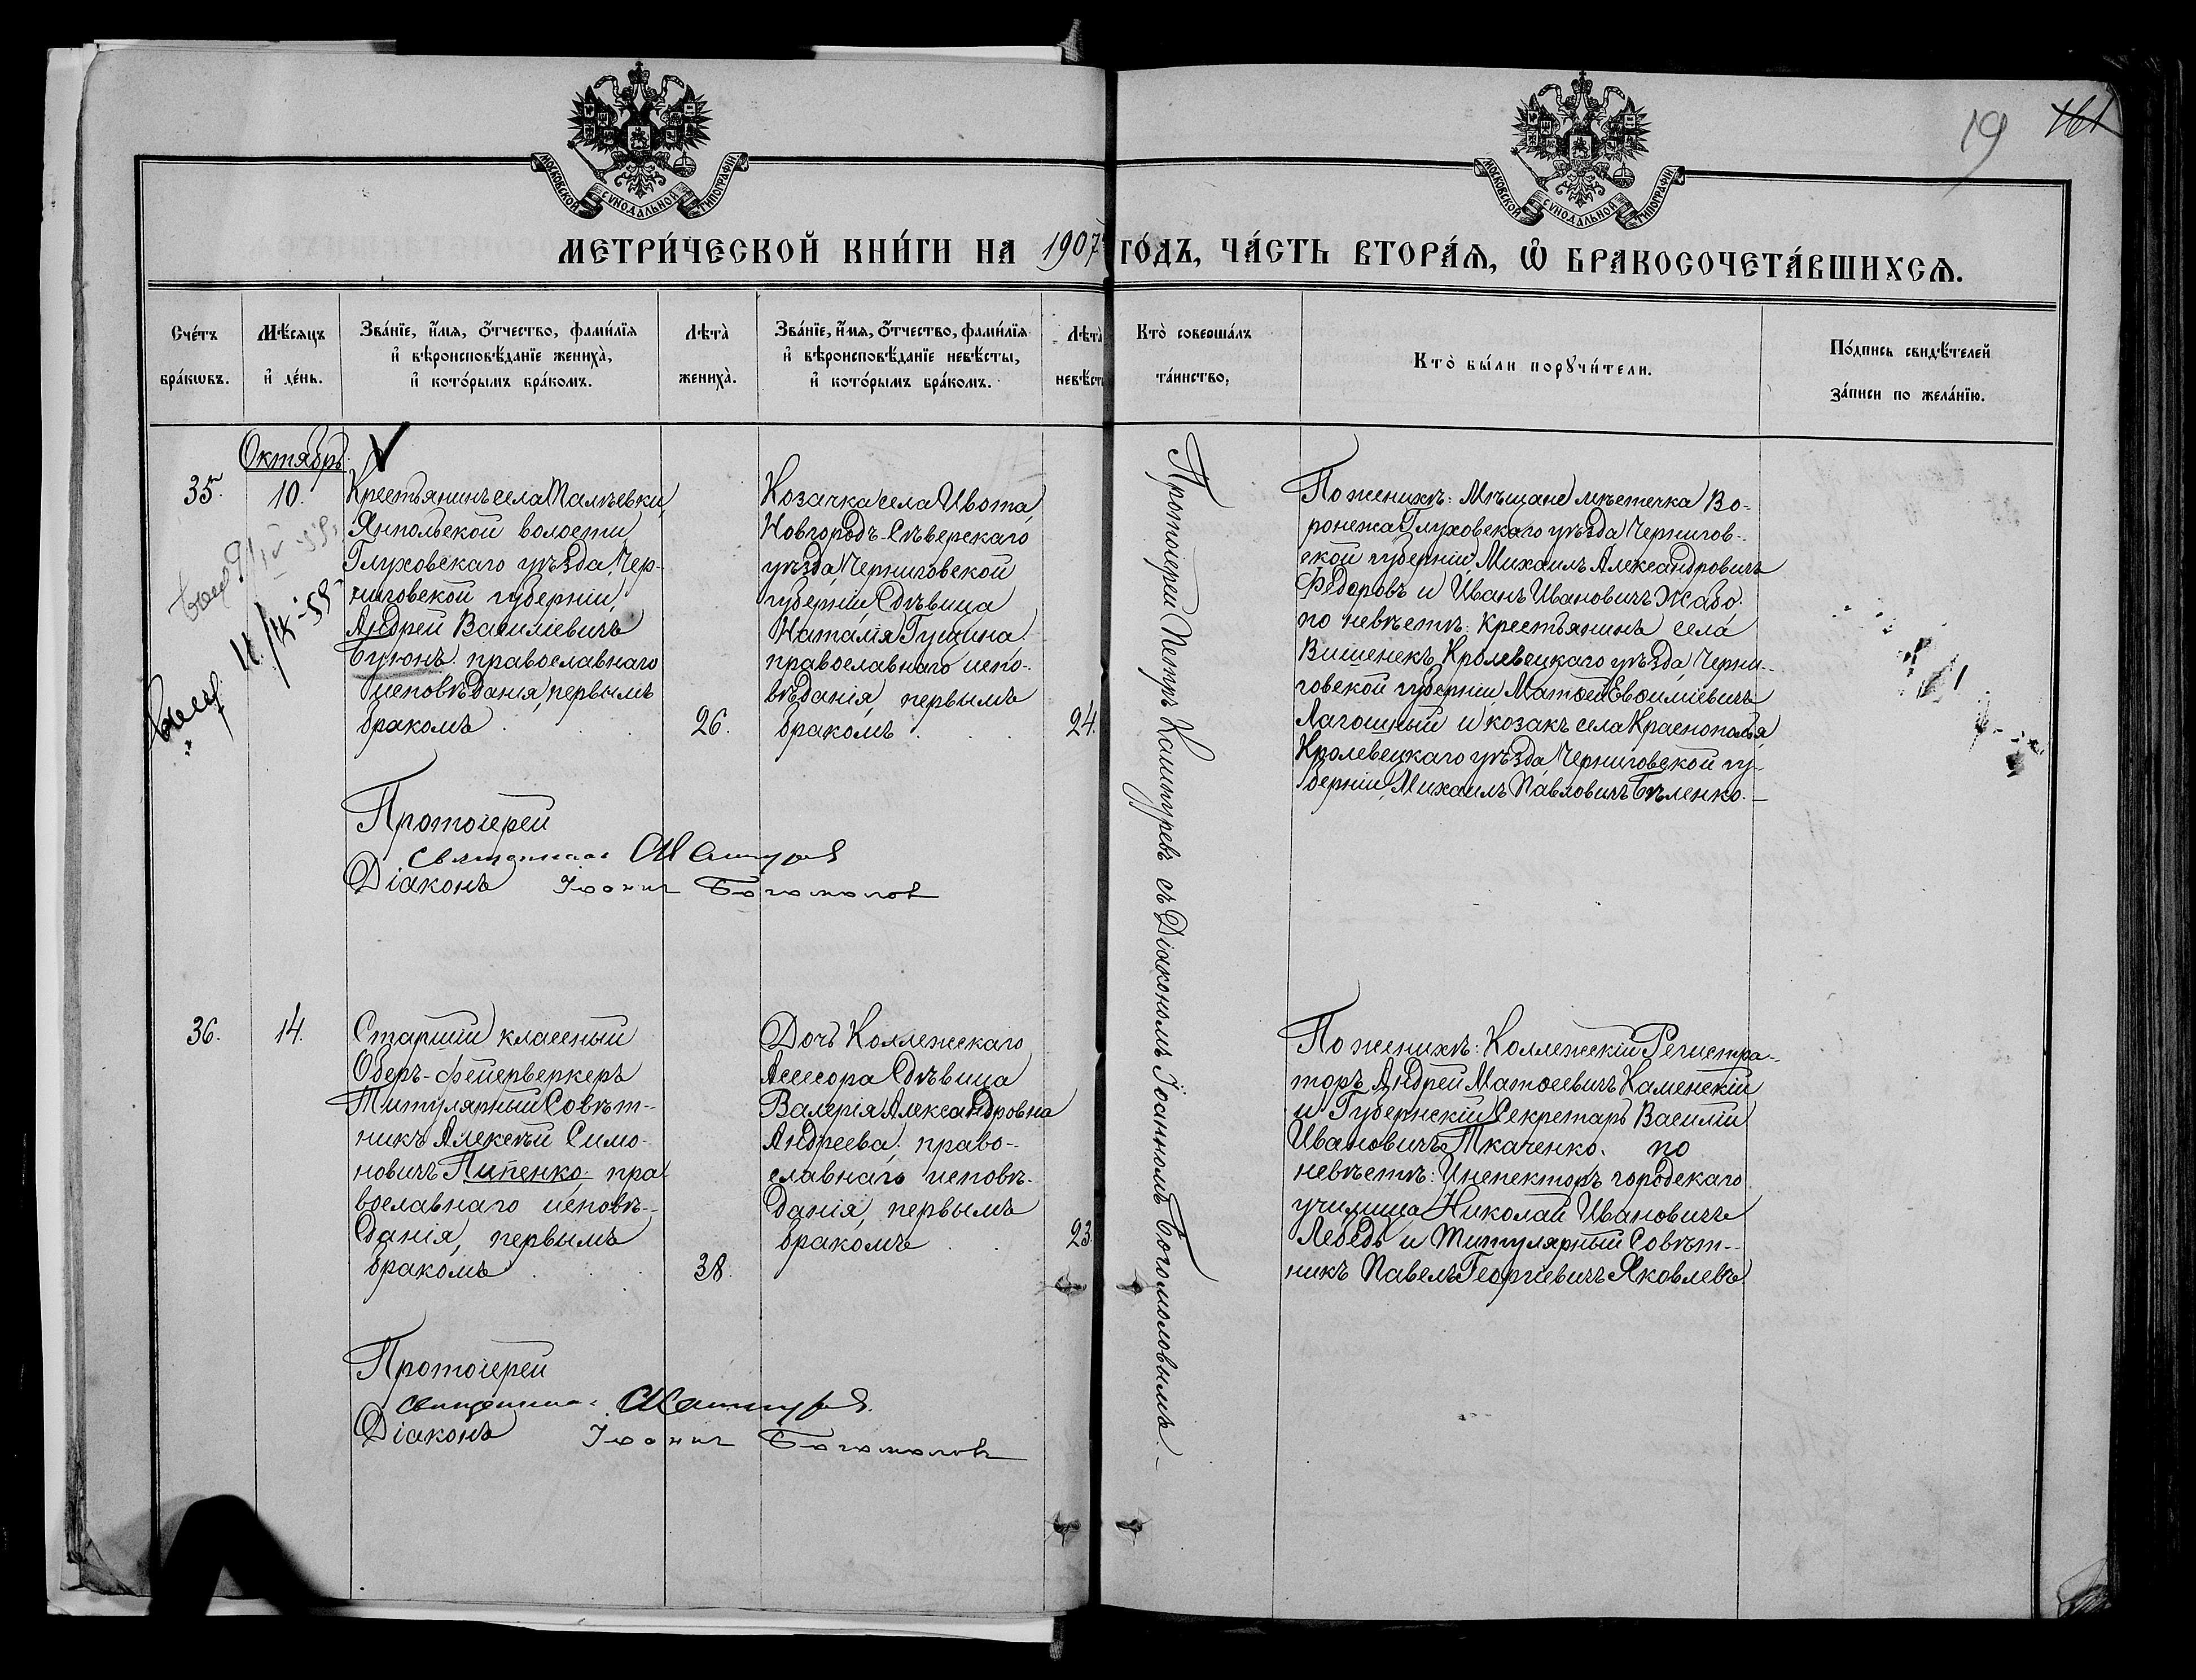 19 161
МОСКОВСКОЙ СѴНОДАЛЬНОЙ ТИПОГРАФІИ
МОСКОВСКОЙ СѴНОДАЛЬНОЙ ТИПОГРАФІИ
МЕТРИ́ЧЕСКОЙ КНИ́ГИ НА 1907 ГО́ДЪ, ЧА́СТЬ ВТОРА́Ѧ, Ѡ҆ БРАКОСОЧЕТА́ВШИХСѦ.
Сче́тъ
бра́кѡвъ.
Мѣ́сяцъ
и҆ де́нь.
Зва́нїе, и҆́мя, ѻ҆́тчество, фами́лїя
и҆ вѣроисповѣ́данїе жениха̀,
и҆ кото́рымъ бра́комъ.
Лѣта̀
жениха̀.
Зва́нїе, и҆́мя, ѻ҆́тчество, фами́лїя
и҆ вѣроисповѣ́данїе невѣ́сты,
и҆ кото́рымъ бра́комъ.
Лѣта̀
невѣ́ст
Кто̀ соверша́лъ
та́инство.
Кто̀ бы́ли порꙋчи́тели.
По́дпись свидѣ́телей
за́писи по жела́нїю.
Октябрь
35.
10.
Крестьянинъ села Палѣевки,
Янпольской волости
Глуховскаго уѣзда, Чер-
ниговской губерніи,
Андрей Василіевичъ
Бугюнъ. православнаго
исповѣданія, первымъ
бракомъ
26.
Козачка села Ивота,
Новгородъ-Сѣверскаго
уѣзда Черниговской
губерніи, дѣвица
Наталія Гущина.
православнаго испо-
вѣданія, первымъ
бракомъ
24.
Протоіерей Петръ Кашпуревъ съ Діакономъ Іоанномъ Богомоловымъ.
По женихѣ: Мѣщане мѣстечка Во-
ронежа Глуховскаго уѣзда Чернигов-
ской губерніи, Михаилъ Александровичъ
Федоровъ и Иванъ Ивановичъ Жабо.
по невѣстѣ: Крестьянинъ села
Вишенекъ, Кролевецкаго уѣзда, Черни-
говской губерніи Матѳей Евѳиміевичъ
Лагошный и козакъ села Краснополья,
Кролевецкаго уѣзда, Черниговской гу-
берніи, Михаилъ Павловичъ Бѣленко.
Протоіерей
Діаконъ Іоаннъ Богомолов
36.
14.
Старшій классный
Оберъ-фейерверкеръ
Титулярный Совѣт-
никъ Алексѣй Симо-
новичъ Пипенко. пра-
вославнаго исповѣ-
данія, первымъ
бракомъ
38.
Дочь Коллежскаго
Асессора дѣвица
Валерія Александровна
Андреева. право-
славнаго исповѣ-
данія, первымъ
бракомъ
23.
По женихѣ: Коллежскій Регистра-
торъ Андрей Матѳеевичъ Каменскій
и Губернскій Секретарь Василій
Ивановичъ Ткаченко. по
невѣстѣ: Инспекторъ городскаго
училища Николай Ивановичъ
Лебедь и Титулярный Совѣт-
никъ Павелъ Георгіевичъ Яковлевъ
Протоіерей
Діаконъ Іоаннъ Богомолов